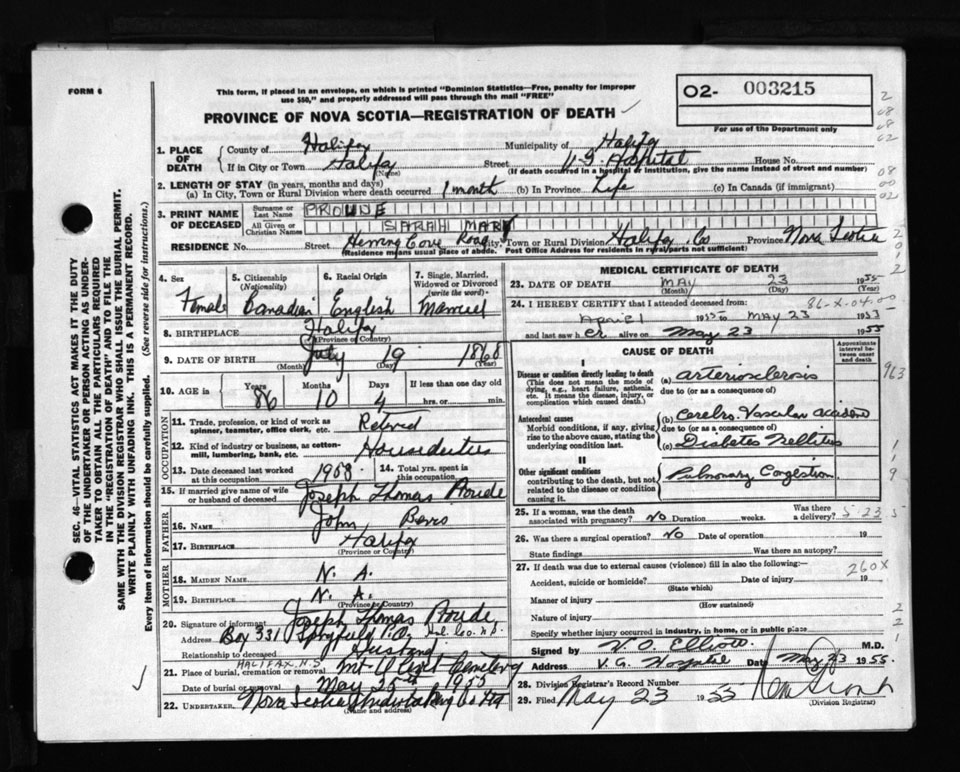 FORM 6
This form, if placed in an envelope, on which is printed "Dominion Statistics—Free, penalty for improper
use $50," and properly addressed will pass through the mail "FREE"
PROVINCE OF NOVA SCOTIA—REGISTRATION OF DEATH
02- 003215
For use of the Department only
1. PLACE OF DEATH
County of Halifax Municipality of Halifax
If in City or Town Halifax Street V.G. Hospital House No.
(Name) (If death occurred in a hospital or institution, give the name instead of street and number)
2. LENGTH OF STAY (in years, months and days)
(a) In City, Town or Rural Division where death occurred 1 month (b) In Province Life (c) In Canada (if immigrant)
3. PRINT NAME OF DECEASED
Surname or Last Name
All Given or Christian Names SARAH MARY
RESIDENCE No. Street Herring Cove Road City, Town or Rural Division Halifax Co Province Nova Scotia
(Residence means usual place of above. Post Office Address for residents in rural parts not sufficient)
4. Sex Female
5. Citizenship (Nationality) Canadian
6. Racial Origin English
7. Single, Married, Widowed or Divorced (write the word) Married
8. BIRTHPLACE Halifax
(Province or Country)
9. DATE OF BIRTH July 19 1868
(Month) (Day) (Year)
10. AGE is Years 86 Months 10 Days 4 If less than one day old hrs. or min.
OCCUPATION
11. Trade, profession, or kind of work as spinner, teamster, office clerk, etc. Retired
12. Kind of industry or business, as cotton-mill, lumbering, bank, etc. Houseduties
13. Date deceased last worked at this occupation 1908
14. Total yrs. spent in this occupation
15. If married give name of wife or husband of deceased Joseph Thomas
FATHER
16. NAME John
17. BIRTHPLACE Halifax
(Province or Country)
MOTHER
18. MAIDEN NAME N. A.
19. BIRTHPLACE N. A.
(Province or Country)
20. Signature of informant Joseph Thomas
Address Box 331 Spryfield P.O. Hal. Co. N.S.
Relationship to deceased Husband
HALIFAX, N.S
21. Place of burial, cremation or removal Mt Olivet Cemetery
Date of burial or removal May 25th 1955
22. UNDERTAKER Nova Scotia Undertaking Co
(Name and address)
MEDICAL CERTIFICATE OF DEATH
23. DATE OF DEATH MAY 23 1955
(Month) (Day) (Year)
24. I HEREBY CERTIFY that I attended deceased from:
86-X-04-00
April 1955 to MAY 23 1955
and last saw her alive on May 23 1955
CAUSE OF DEATH
Approximate interval between onset and death
I
Disease or condition directly leading to death
(This does not mean the mode of dying, e.g., heart failure, asthenia, etc. It means the disease, injury, or complication which caused death.)
(a) arteriosclerosis
due to (or as a consequence of)
Antecedent causes
Morbid conditions, if any, giving rise to the above cause, stating the underlying condition last.
(b) Cerebro-Vascular accident
due to (or as a consequence of)
(c) Diabetes Mellitus
II
Other significant conditions
contributing to the death, but not related to the disease or condition causing it.
Pulmonary Congestion
963
25. If a woman, was the death associated with pregnancy? NO Duration weeks. Was there a delivery?
26. Was there a surgical operation? NO Date of operation 19
State findings Was there an autopsy?
27. If death was due to external causes (violence) fill in also the following:—
260X
Accident, suicide or homicide? Date of injury 19
(State which)
Manner of injury
(How sustained)
Nature of injury
Specify whether injury occurred in industry, in home, or in public place
Signed by V. O. Elliott M.D.
Address V.G. Hospital Date May 23 1955.
28. Division Registrar's Record Number
29. Filed May 23 1955
(Division Registrar)
SEC. 46—VITAL STATISTICS ACT MAKES IT THE DUTY
OF THE UNDERTAKER OR PERSON ACTING AS UNDER-
TAKER TO OBTAIN ALL THE PARTICULARS REQUIRED
IN THE "REGISTRATION OF DEATH" AND TO FILE THE
SAME WITH THE DIVISION REGISTRAR WHO SHALL ISSUE THE BURIAL PERMIT.
WRITE PLAINLY WITH UNFADING INK. THIS IS A PERMANENT RECORD.
Every item of information should be carefully supplied. (See reverse side for instructions.)